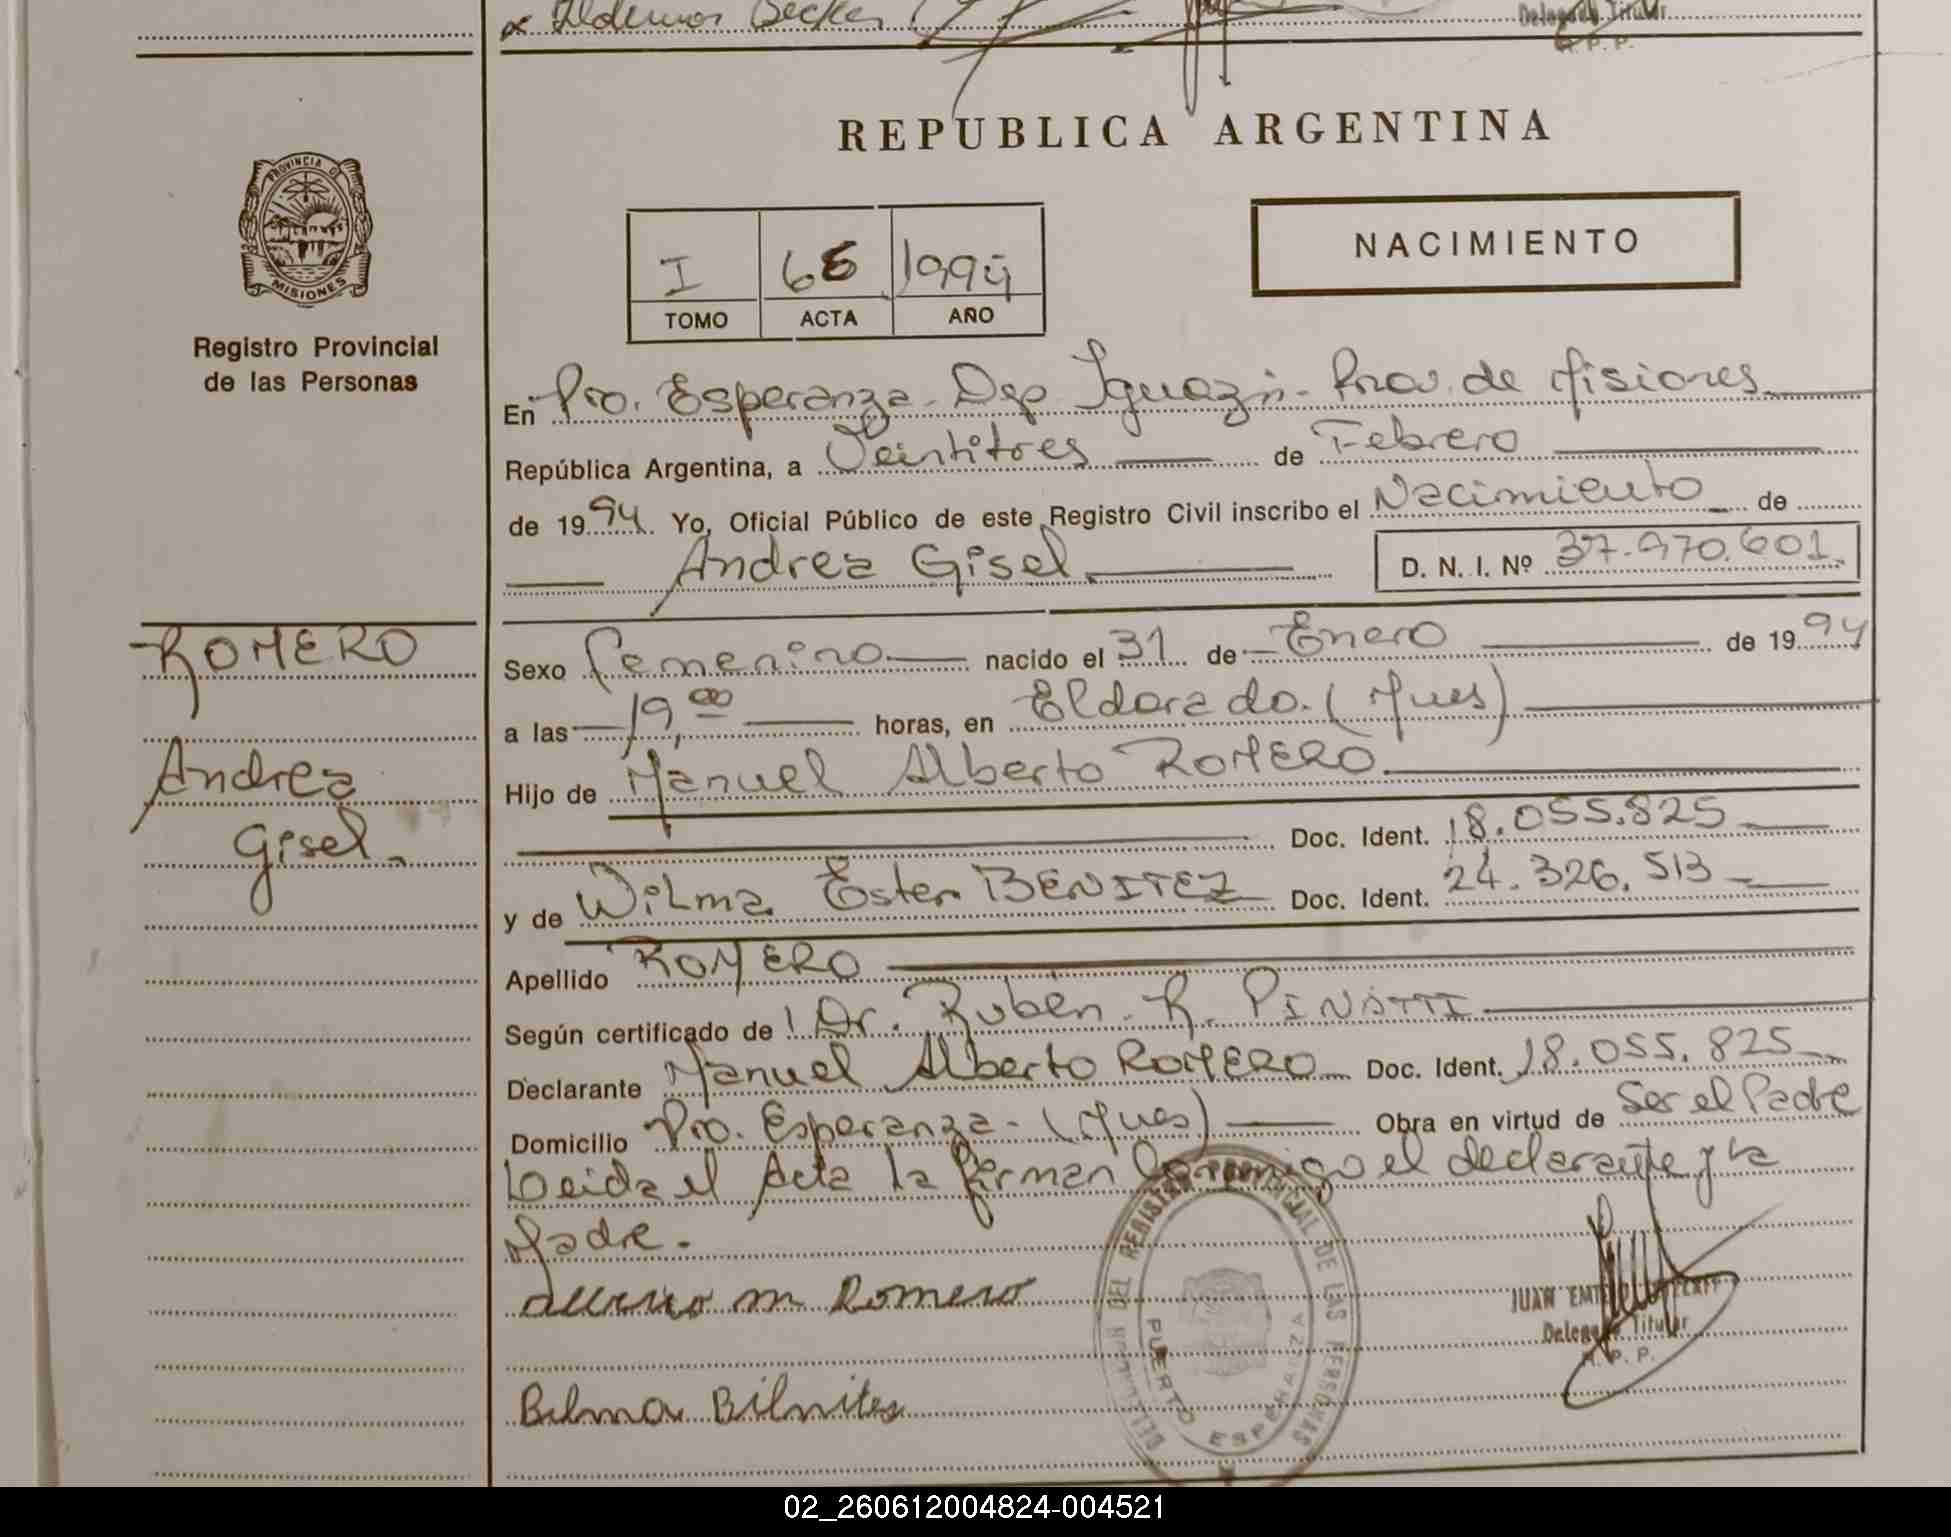 Delegado Titular
R. P. P.
REPUBLICA ARGENTINA
PROVINCIA DE
MISIONES
Registro Provincial
de las Personas
I 66 1994
TOMO ACTA AÑO
NACIMIENTO
En Pto. Esperanza - Dep Iguazú - Prov. de Misiones
República Argentina, a Veintitres de Febrero
de 1994. Yo, Oficial Público de este Registro Civil inscribo el Nacimiento de
Andrea Gisel D. N. I. Nº 37.970.601
ROMERO
Andrea
Gisel
Sexo Femenino nacido el 31 de Enero de 1994
a las 19,00 horas, en Eldorado. (Mnes)
Hijo de Manuel Alberto ROMERO
Doc. Ident. 18.055.825
y de Wilma Ester BENITEZ Doc. Ident. 24.326.513
Apellido ROMERO
Según certificado de Dr. Rubén R. PINATTI
Declarante Manuel Alberto ROMERO Doc. Ident. 18.055.825
Domicilio Pto. Esperanza - (Mnes) Obra en virtud de Ser el Padre
Leida el Acta la firman conmigo el declarante y la
Madre.
m Romero
DEL REGISTRO PROVINCIAL DE LAS PERSONAS
PUERTO ESPERANZA
JUAN
Delegado Titular
R. P. P.
02_260612004824-004521